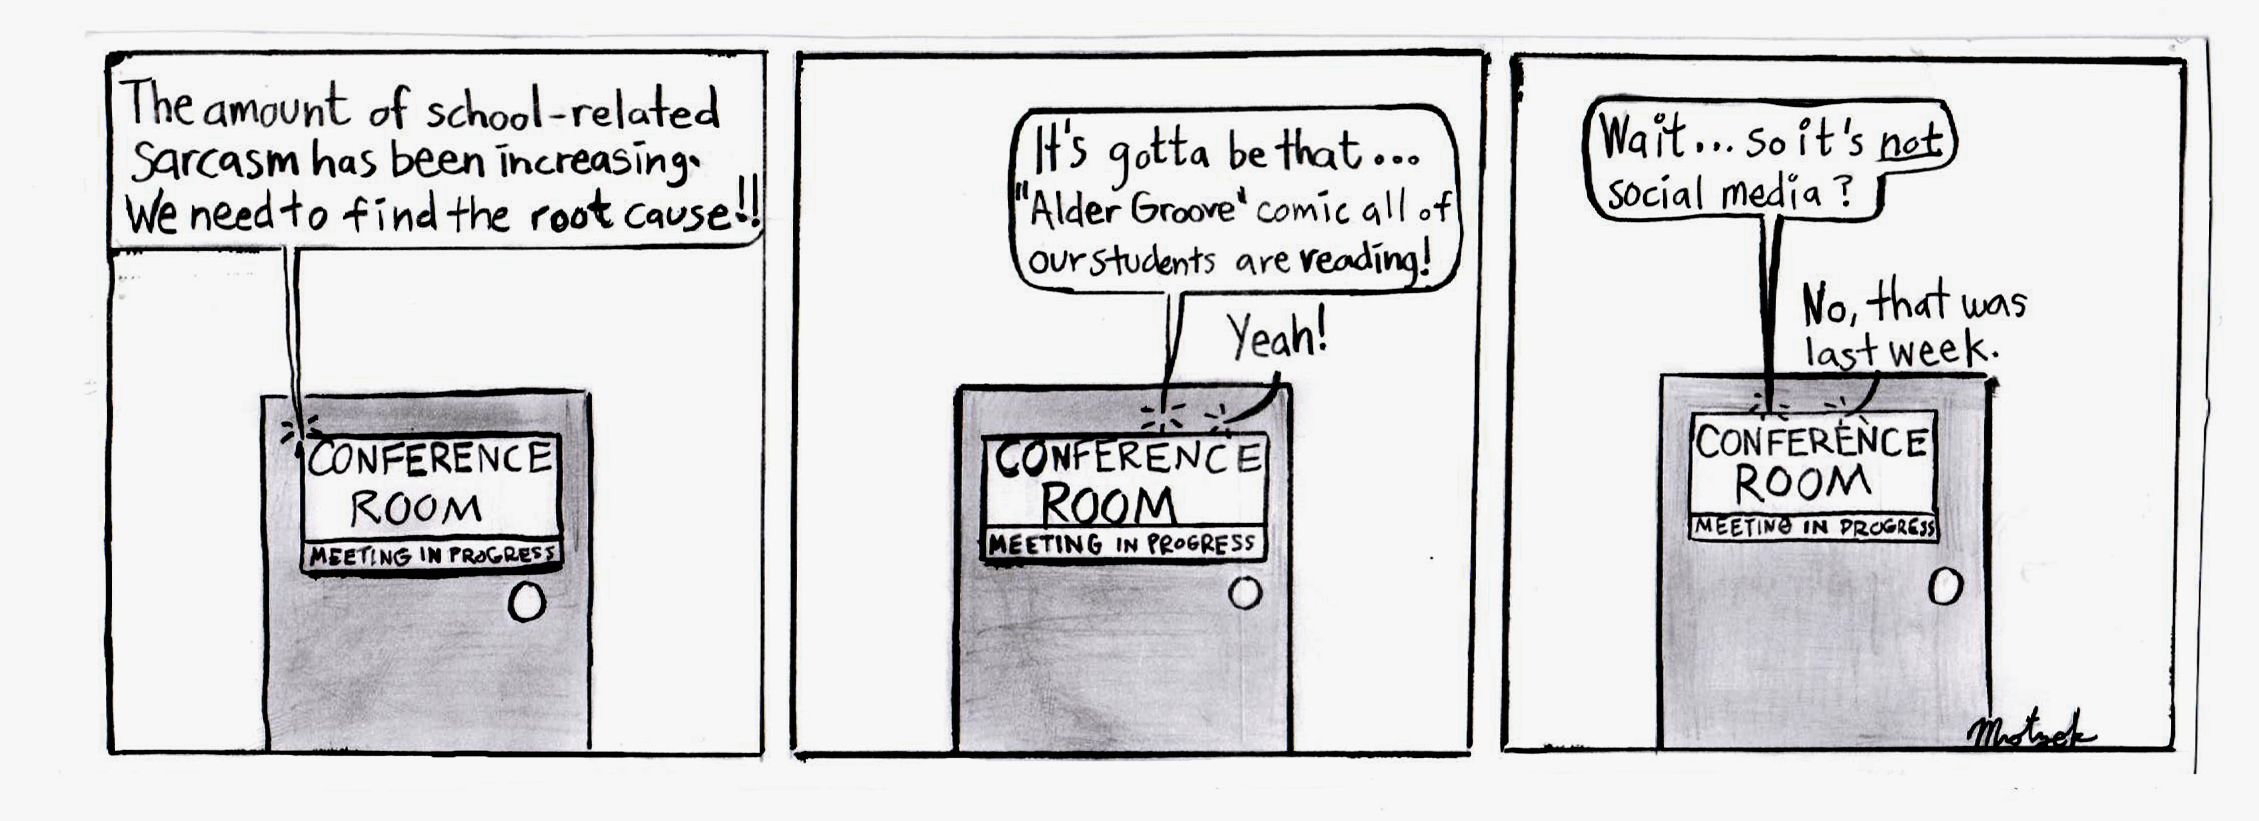 The amount of school-related
Sarcasm has been increasing.
We need to find the root cause!!
CONFERENCE
ROOM
MEETING IN PROGRESS
It's gotta be that...
"Alder Groove" comic all of
our students are reading!
Yeah!
CONFERENCE
ROOM
MEETING IN PROGRESS
Wait... so it's not
social media?
No, that was
last week.
CONFERENCE
ROOM
MEETING IN PROGRESS